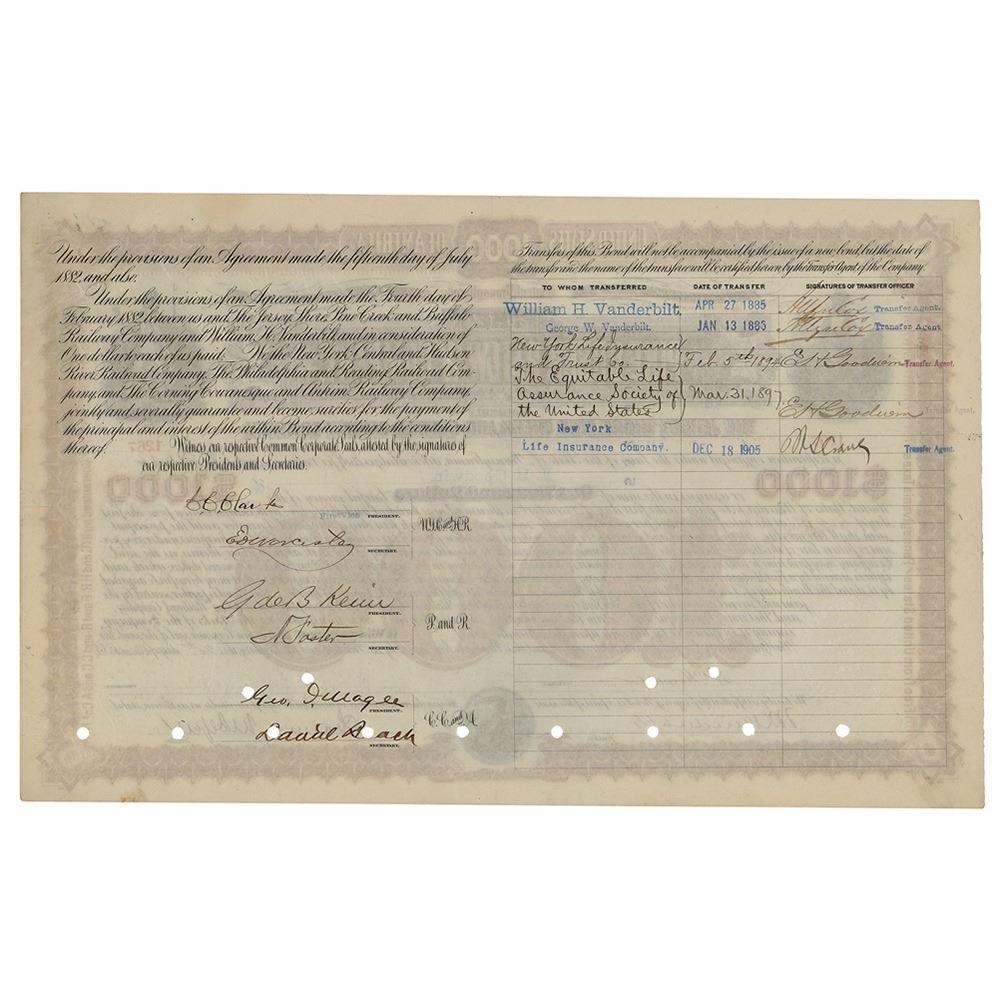 Under the provisions of an Agreement made the fifteenth day of July
1882, and also.
Under the provisions of an Agreement made the Fourth day of
February 1882 between us and The Jersey Shore Pine Creek and Buffalo
Railway Company and William H. Vanderbilt, and in consideration of
One dollar to each of us paid; We the New York Central and Hudson
River Railroad Company, The Philadelphia and Reading Railroad Com-
pany, and The Corning Cowanesque and Antrim Railway Company,
jointly and severally guarantee and become sureties for the payment of
the principal and interest of the within Bond according to the conditions
thereof.
Witness our respective Common Corporate Seals, attested by the signature of
our respective Presidents and Secretaries.
First Vice PRESIDENT.
N.Y.C. and H.R.
SECRETARY.
G de B Keim
PRESIDENT.
P. and R.
SECRETARY.
Geo. J. Magee
PRESIDENT.
C. C. and A.
Daniel Beach
SECRETARY.
Transfers of this Bond will not be accompanied by the issue of a new bond, but the date of
the transfer and the name of the transferee will be certified hereon by the Transfer Agent of the Company.
TO WHOM TRANSFERRED DATE OF TRANSFER SIGNATURES OF TRANSFER OFFICER
William H. Vanderbilt. APR 27 1885 Transfer Agent.
George W. Vanderbilt. JAN 13 1886 Transfer Agent
New York Life Insurance
and Trust Co. Feb. 5th 1894 E H Goodwin Transfer Agent.
The Equitable Life
Assurance Society of Mar. 31. 1897
the United States E H Goodwin Transfer Agent.
New York
Life Insurance Company. DEC 18 1905 Transfer Agent.